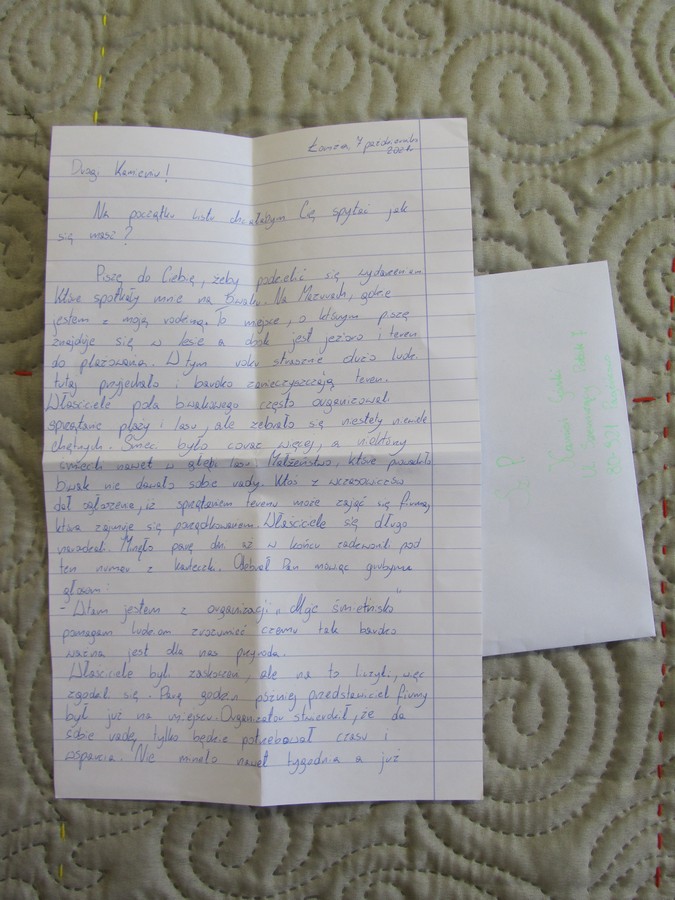 Łomża, 7 październik
2021r.
Drogi Kamieniu!
Na początku listu chciałabym Cię spytać jak
się masz?
Piszę do Ciebie, żeby podzielić się wydarzeniem
które spotkały mnie na biwaku. Na Mazurach, gdzie
jestem z moją rodziną. To miejsce, o którym piszę
znajduje się w lesie a obok jest jezioro i teren
do plażowania. W tym roku straszne dużo ludzi
tutaj przyjechało i bardzo zanieczyszczają teren.
Właściciele pola biwakowego często organizowali
sprzątanie plaży i lasu, ale zebrało się niestety niewiele
chętnych. Śmieci było coraz więcej, a
śmieci nawet w głębi lasu. Małżeństwo, które prowadziło
biwak nie dawało sobie rady. Ktoś z wczasowiczów
dał ogłoszenie, iż sprzątaniem terenu może zająć się firma,
która zajmuje się porządkowaniem. Właściciele się długo
naradzali. Minęło parę dni aż w końcu zadzwonili pod
ten numer z karteczki. Odebrał Pan mówiąc grubym
głosem:
- Witam jestem z organizacji „Moje śmietnisko"
pomagam ludziom zrozumieć czemu tak bardzo
ważna jest dla nas przyroda.
Właściciele byli zaskoczeni, ale na to liczyli, więc
zgodzili się. Parę godzin później przedstawiciel firmy
był już na miejscu. Organizator stwierdził, że da
sobie radę, tylko będzie potrzebował czasu i
wsparcia. Nie minęło nawet tygodnia a już